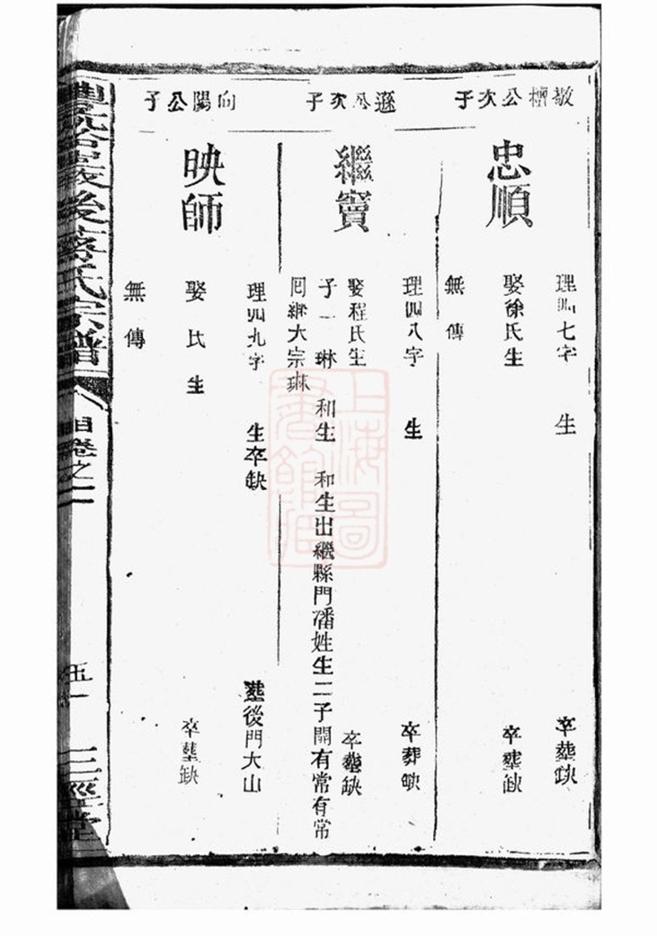 敬檀公次子
忠順
理四七字 生 卒塟缺
娶徐氏生 卒塟缺
無傳
遜公次子
繼寶
理四八字 生 卒葬缺
娶程氏生 卒塟缺
子一 琳 和生 和生出繼縣門潘姓生二子開有常有常
回繼大宗琳
向陽公子
映師
理四九字 生卒缺 塟後門大山
娶氏生 卒塟缺
無傳
後蔣氏宗譜
卷之二
三徑堂
上海圖書館藏